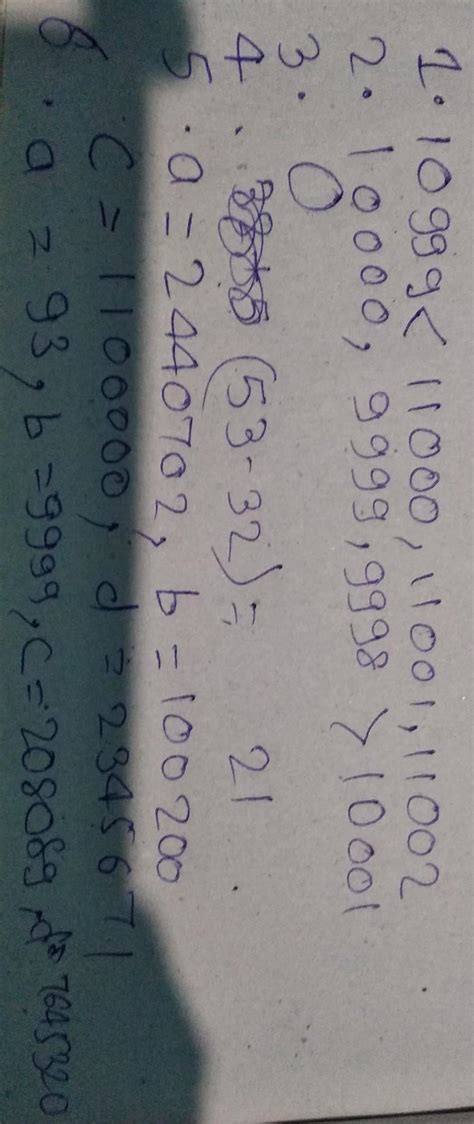 1. 10999 < 11000, 11001, 11002
2. 10000, 9999, 9998 > 10001
3. 0
4. (53-32) = 21
5. a = 2440702, b = 100200
c = 1100000, d = 2345671
6. a = 93, b = 9999, c = 208089, d = 7645320